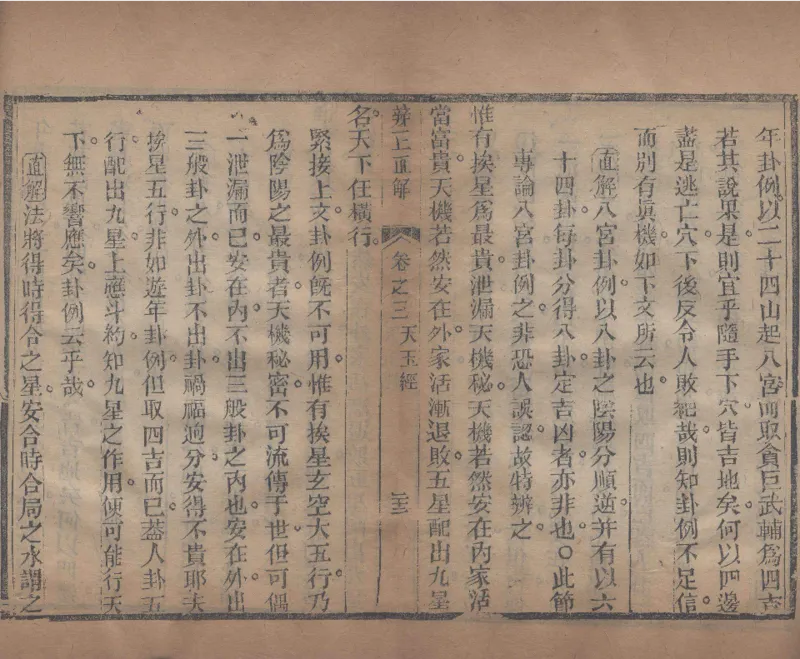 年卦例以二十四山起八宮而取貪巨武輔爲四吉
若其說果是則宜乎隨手下穴皆吉地矣何以四邊
盡是逃亡穴下後反令人敗絕哉則知卦例不足信
而別有眞機如下文所云也
直解八宮卦例以八卦之陰陽分順逆并有以六
十四卦每卦分得八卦定吉凶者亦非也○此節
專論八宮卦例之非恐人誤認故特辨之
惟有挨星爲最貴泄漏天機秘天機若然安在內家活
當富貴天機若然安在外家活漸退敗五星配出九星
辨正直解 卷之三 天玉經 三
名天下任橫行
緊接上文卦例旣不可用惟有挨星玄空大五行乃
爲陰陽之最貴者天機秘密不可流傳于世但可偶
一泄漏而已安在內不出三般卦之內也安在外出
三般卦之外出卦不出卦禍福逈分安得不貴耶夫
挨星五行非如遊年卦例但取四吉而已葢八卦五
行配出九星上應斗杓知九星之作用便可能行天
下無不響應矣卦例云乎哉
直解法將得時得合之星安合時合局之水謂之